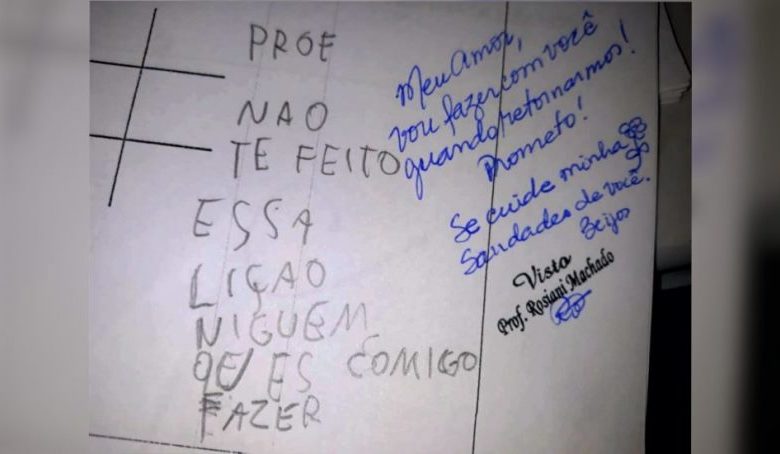 PROF
NAO
TE FEITO
ESSA
LIÇAO
NIGUEM
QUES COMIGO
FAZER
Meu Amor,
vou fazer com você
quando retornarmos!
Prometo!
Se cuide minha
Saudades de você.
Beijos
Visto
Prof. Rosiani Machado